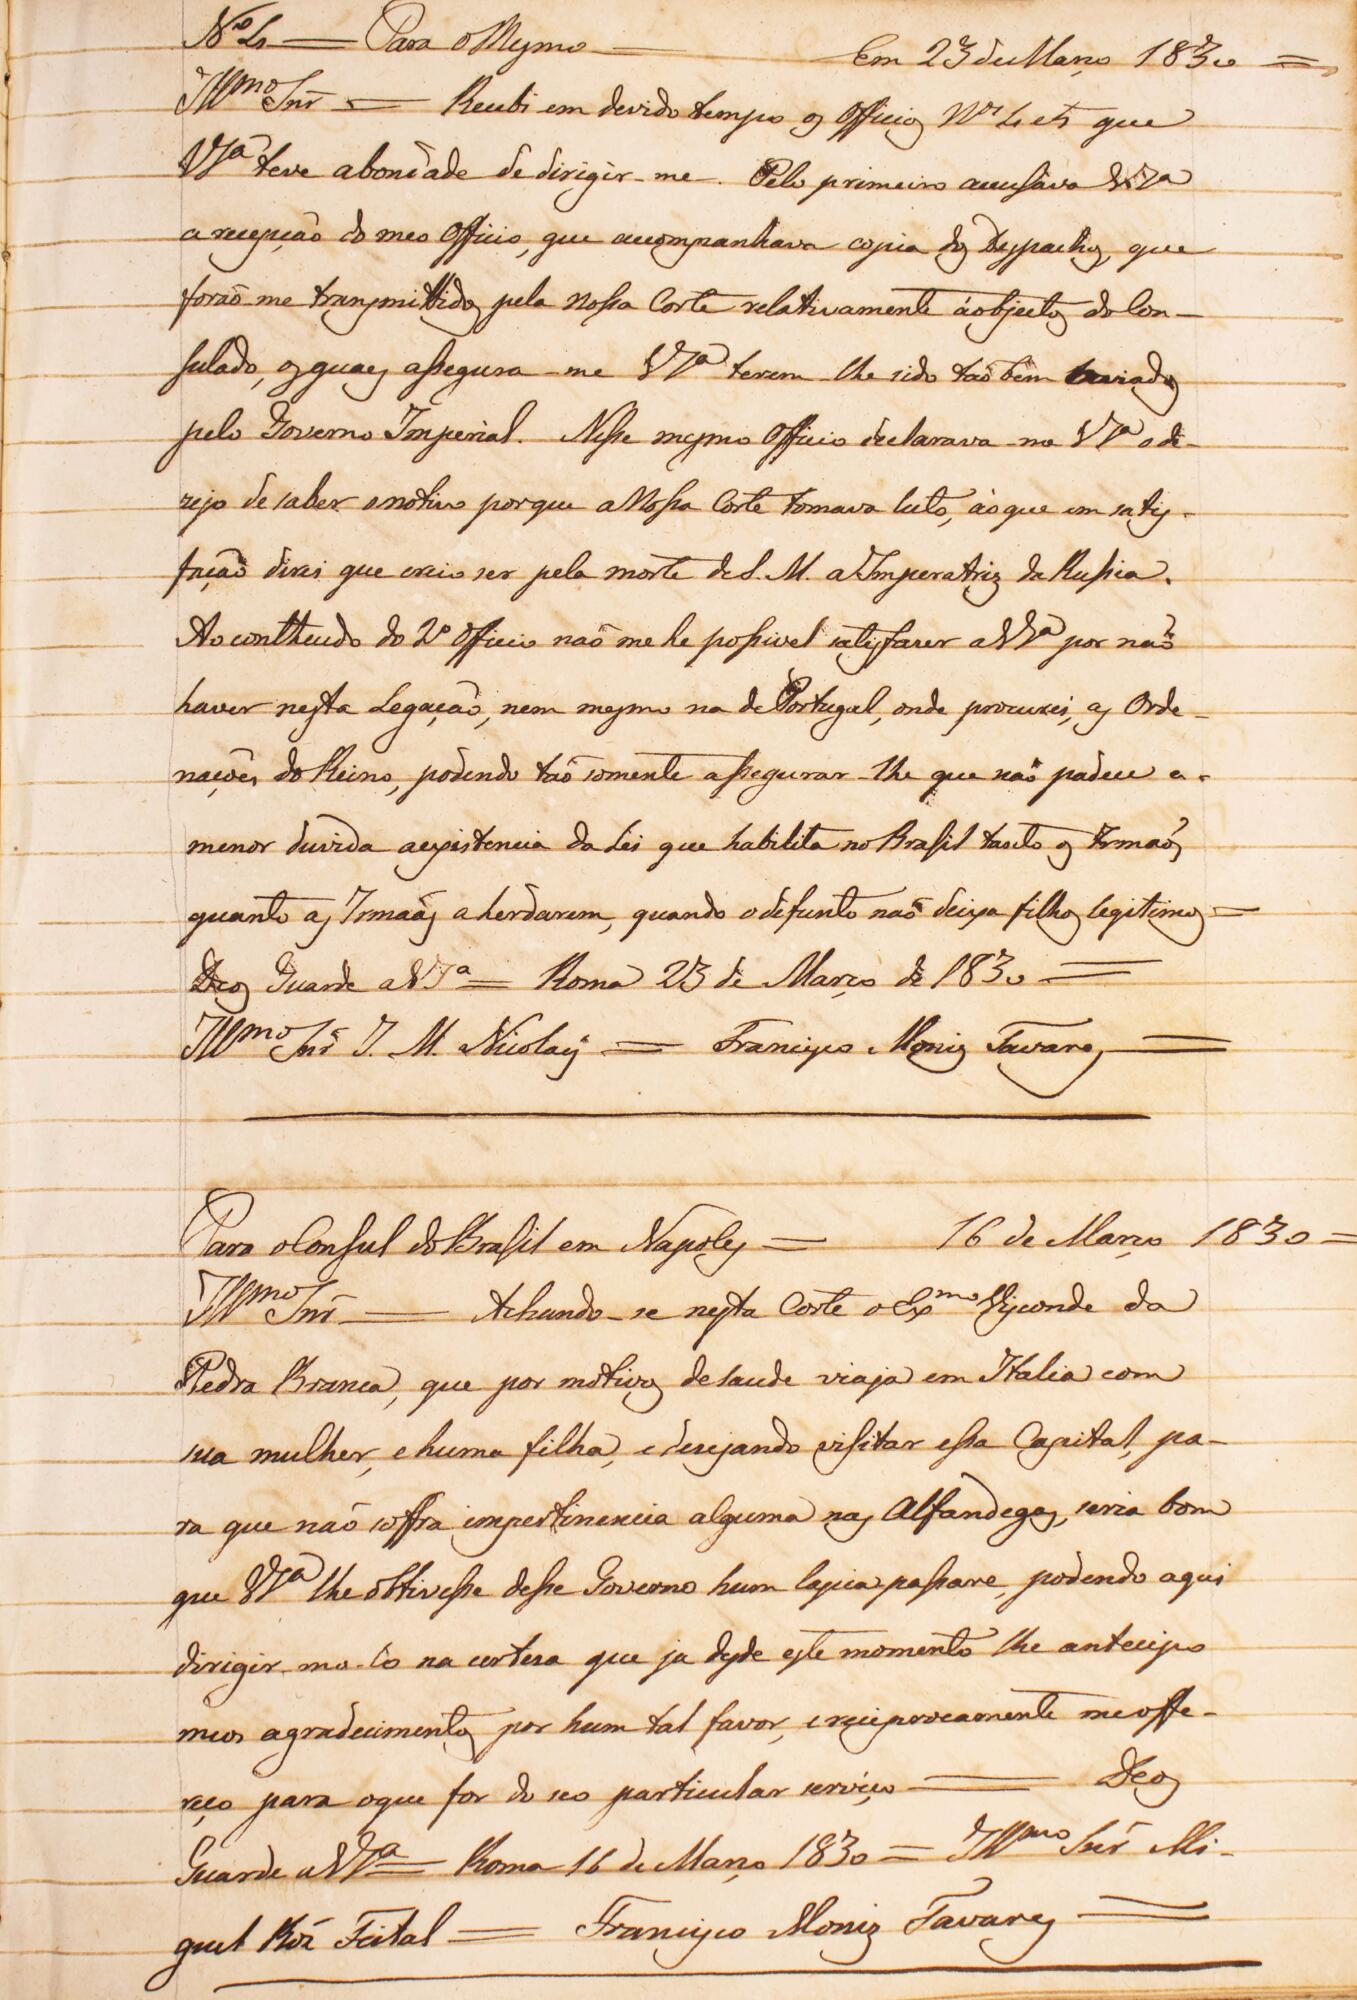 Nº 4 = Para o Mesmo — Em 23 de Março 1830 =
Illmo Snr = Recebi em devido tempo os Officios Nos 4 e 5 que
VSª teve a bondade de dirigir-me. Pelo primeiro accusava VSª
a recepção do meo Officio, que acompanhava copia dos Despachos, que
forão me transmittidos pela nossa Corte relativamente á objectos do Con-
sulado, os quaes assegura-me VSª terem-lhe sido tão bem enviados
pelo Governo Imperial. Nesse mesmo Officio declarava-me VSª o de-
zejo de saber o motivo porque a Nossa Corte tomava luto, ao que em satis-
fação direi que creio ser pela morte de S. M. a Imperatriz da Russia.
Ao contheudo do 2º Officio não me he possivel satisfazer a VSª por não
haver nesta Legação, nem mesmo na de Portugal, onde procurei, as Orde-
nações do Reino, podendo tão somente assegurar-lhe que não padece a-
menor duvida a existencia da Lei que habilita no Brasil tanto os Irmãos,
quanto as Irmaãs a herdarem, quando o defunto não deixa filhos legitimos =
Deos Guarde a VSª = Roma 23 de Março de 1830 =
Illmo Snr J. M. Nicolay = Francisco Moniz Tavares =
Para o Consul do Brasil em Napoles = 16 de Março 1830 =
Illmo Snr = Achando-se nesta Corte o Exmo Visconde da
Pedra Branca, que por motivos de saude viaja em Italia com
sua mulher, e huma filha, e desejando visitar essa Capital, pa-
ra que não soffra impertinencia alguma nas Alfandegas, seria bom
que VSª lhe obtivesse desse Governo hum lascia passare, podendo aqui
dirigir-mo-lo na certesa que ja desde este momento lhe antecipo
meos agradecimentos por hum tal favor, e reciprocamente me offe-
reço para o que for do seo particular serviço = Deos
Guarde a VSª = Roma 16 de Março 1830 = Illmo Snr Mi-
guel Roz Feital = Francisco Moniz Tavares =